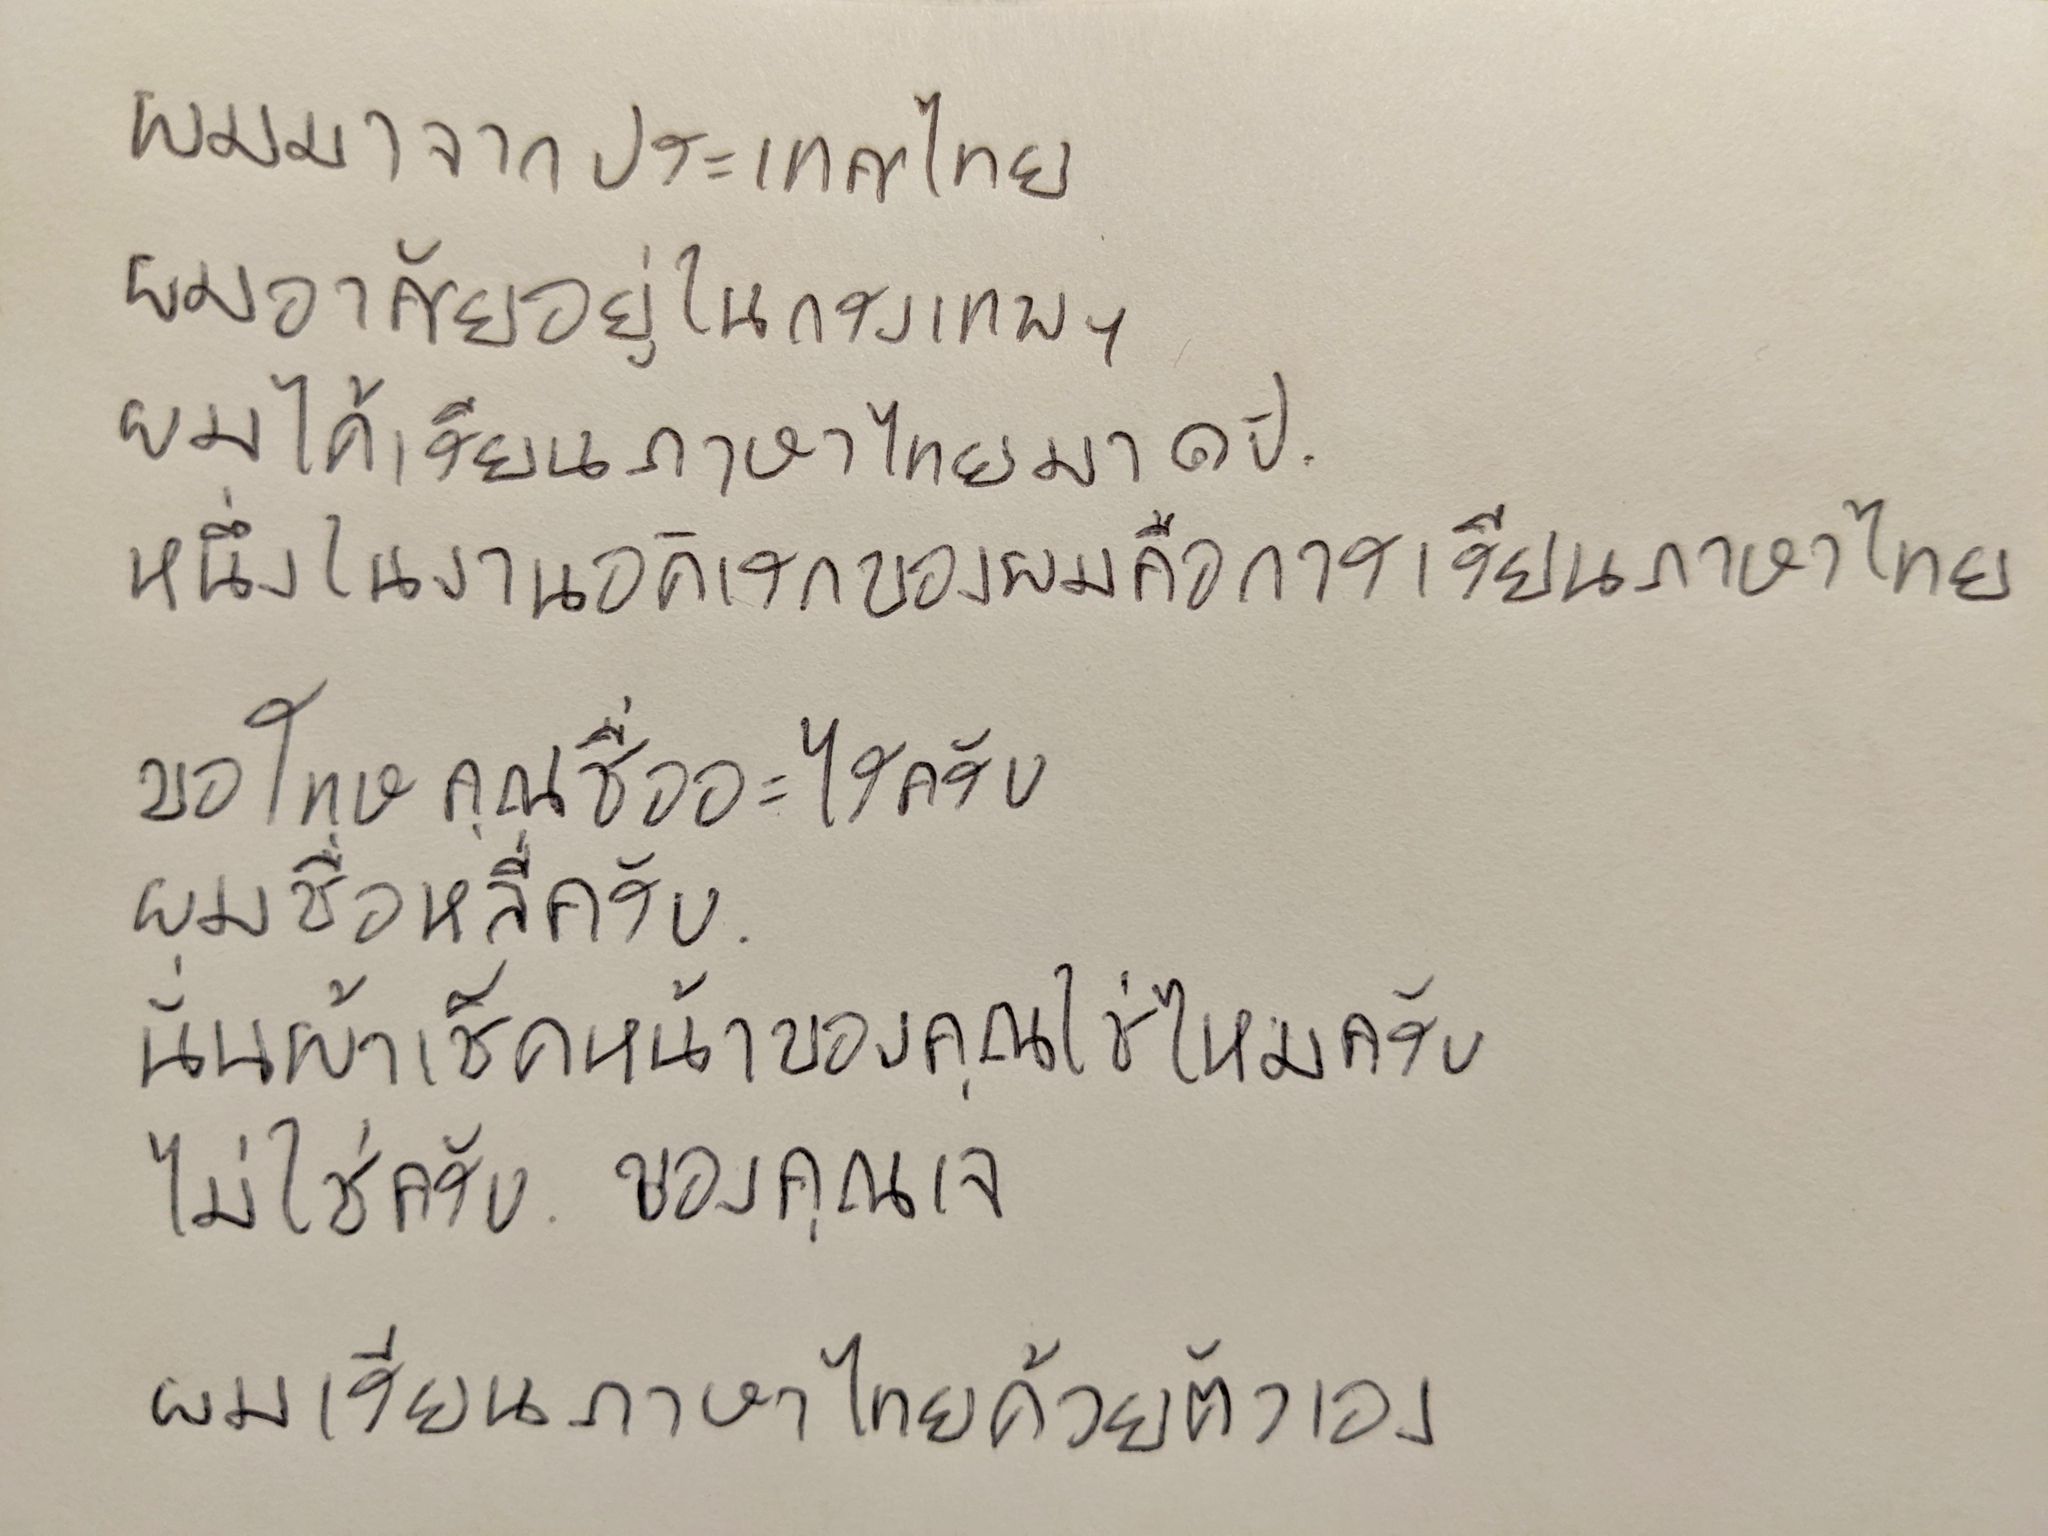 ผมมาจากประเทศไทย
ผมอาศัยอยู่ในกรงเทพฯ
ผมได้เรียนภาษาไทยมา ๑ ปี.
หนึ่งในงานอดิเรกของผมคือการเรียนภาษาไทย
ขอโทษ คุณชื่ออะไรครับ
ผมชื่อหลี่ครับ.
นั่นผ้าเช็ดหน้าของคุณใช่ไหมครับ
ไม่ใช่ครับ. ของคุณเจ
ผมเรียนภาษาไทยด้วยตัวเอง